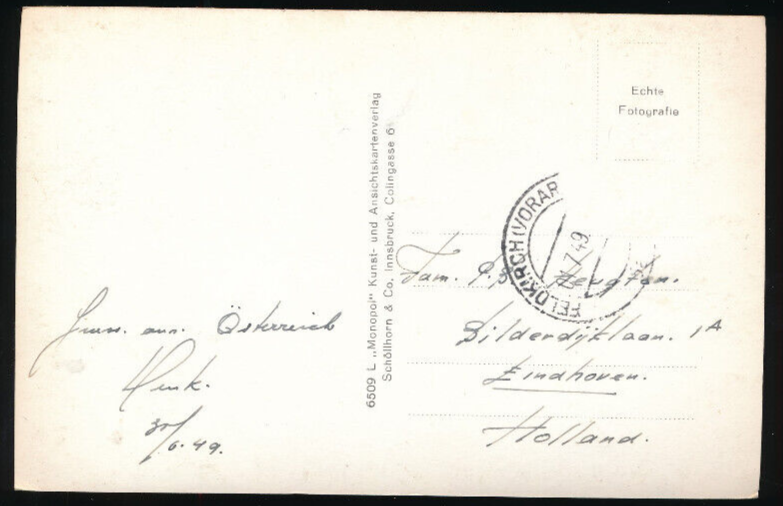 Echte
Fotografie
6509 L „Monopol" Kunst- und Ansichtskartenverlag
Schöllhorn & Co. Innsbruck, Colingasse 6
FELDKIRCH (VORAR
7.49
Fam.
Bilderdijklaan. 1A
Eindhoven.
Holland.
Gruss. aus. Österreich
Henk.
30/6.49.